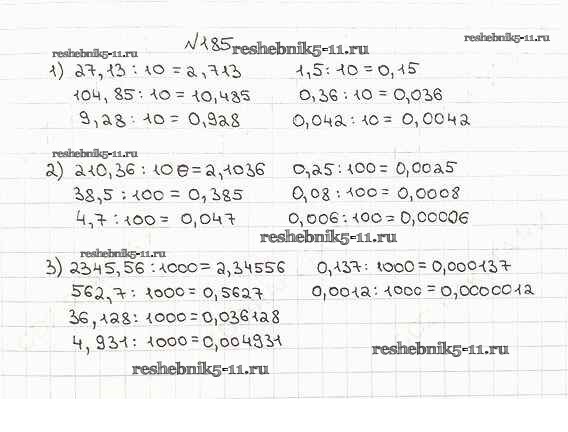 №185 reshebnik5-11.ru reshebnik5-11.ru
reshebnik5-11.ru
1) 27,13 : 10 = 2,713 1,5 : 10 = 0,15
104,85 : 10 = 10,485 0,36 : 10 = 0,036
9,28 : 10 = 0,928 0,042 : 10 = 0,0042
reshebnik5-11.ru
2) 210,36 : 100 = 2,1036 0,25 : 100 = 0,0025
38,5 : 100 = 0,385 0,08 : 100 = 0,0008
4,7 : 100 = 0,047 0,006 : 100 = 0,00006
reshebnik5-11.ru
reshebnik5-11.ru
3) 2345,56 : 1000 = 2,34556 0,137 : 1000 = 0,000137
562,7 : 1000 = 0,5627 0,0012 : 1000 = 0,0000012
36,128 : 1000 = 0,036128
4,931 : 1000 = 0,004931
reshebnik5-11.ru
reshebnik5-11.ru